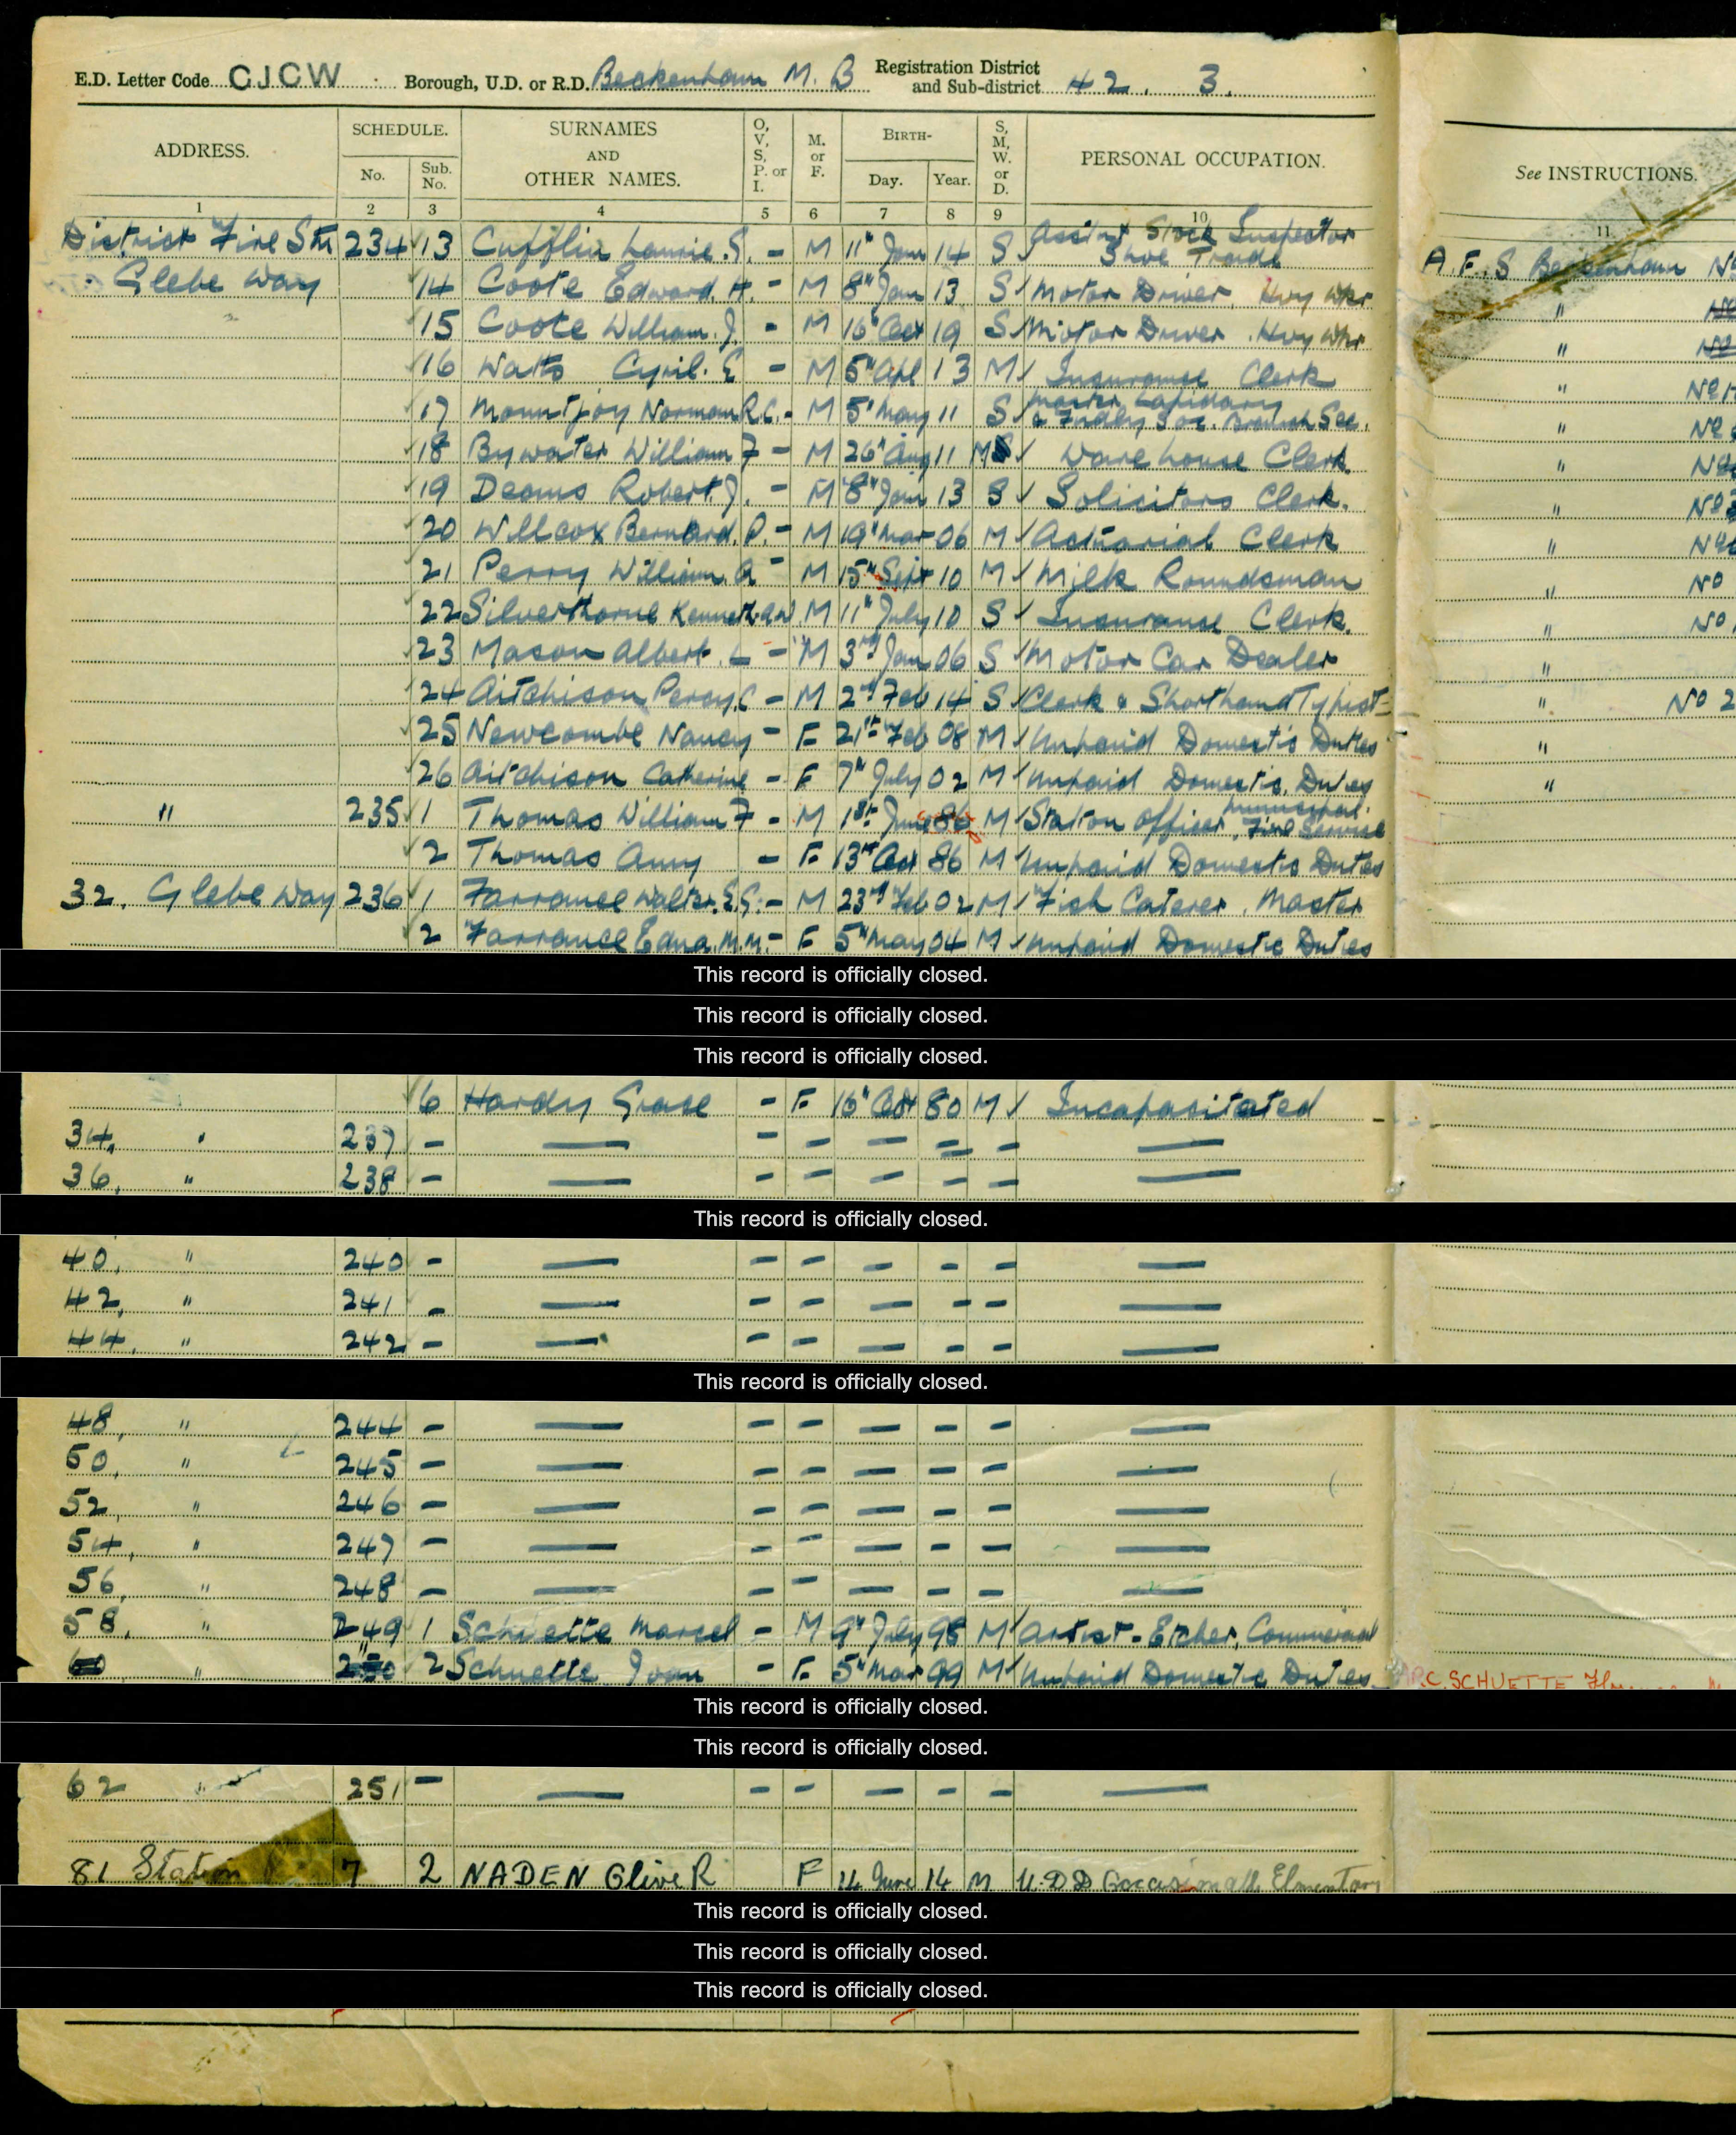 E.D. Letter Code CJCW Borough, U.D. or R.D. Beckenham M.B Registration District and Sub-district 42. 3.
ADDRESS. SCHEDULE. No. Sub. No. SURNAMES AND OTHER NAMES. O, V, S, P. or I. M. or F. BIRTH- Day. Year. S, M, W. or D. PERSONAL OCCUPATION. See INSTRUCTIONS.
1 2 3 4 5 6 7 8 9 10 11
District Fire Stn 234 13 Cufflin Laurie. S. - M 11th Jan 14 S Assist Stock Inspector Shoe Trade A.F.S Beckenham
Glebe Way 14 Coote Edward. H. - M 8th Jan 13 S Motor Driver. Hvy Wkr "
15 Coote William. J. - M 16th Oct 19 S Motor Driver. Hvy Wkr "
16 Watts Cyril. E - M 5th Apl 13 M Insurance Clerk "
17 Mountjoy Norman R.C. - M 5th May 11 S Master Lapidary & Frdly Soc. Branch Sec. "
18 Bywater William F - M 26th Aug 11 M Warehouse Clerk "
19 Deams Robert. J. - M 8th Jan 13 S Solicitors Clerk. "
20 Willcox Bernard. P. - M 19th Mar 06 M Actuarial Clerk "
21 Perry William. A - M 15th Sept 10 M Milk Roundsman " No
22 Silverthorne Kenneth. A.W. M 11th July 10 S Insurance Clerk. " No
23 Mason Albert. L - M 3rd Jan 06 S Motor Car Dealer "
24 Aitchison Percy. C - M 2nd Feb 14 S Clerk & Shorthand Typist " No 2
25 Newcombe Nancy - F 21st Feb 08 M Unpaid Domestic Duties "
26 Aitchison Catherine - F 7th July 02 M Unpaid Domestic Duties "
" 235 1 Thomas William F - M 1st June 86 M Station Officer, Municipal. Fire Service
2 Thomas Amy - F 13th Oct 86 M Unpaid Domestic Duties
32. Glebe Way 236 1 Farrance Walter. E.G. - M 23rd Feb 02 M Fish Caterer. Master
2 Farrance Edna. M.M. - F 5th May 04 M Unpaid Domestic Duties
This record is officially closed.
This record is officially closed.
This record is officially closed.
6 Hardy Grace - F 16th Oct 80 M Incapasitated
34, " 237 - - - - - - - -
36, " 238 - - - - - - - -
This record is officially closed.
40, " 240 - - - - - - - -
42, " 241 - - - - - - - -
44, " 242 - - - - - - - -
This record is officially closed.
48, " 244 - - - - - - - -
50, " 245 - - - - - - - -
52, " 246 - - - - - - - -
54, " 247 - - - - - - - -
56, " 248 - - - - - - - -
58, " 249 1 Schuette Marcel - M 9th July 98 M Artist-Etcher, Commercial
60 " 250 2 Schuette Joan - F 5th Mar 99 M Unpaid Domestic Duties R.C. SCHUETTE
This record is officially closed.
This record is officially closed.
62 " 251 - - - - - - - -
81 Station 7 2 NADEN Olive R F 14 June 14 M U.D.D
This record is officially closed.
This record is officially closed.
This record is officially closed.